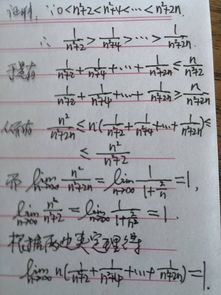 证明: ∵0<n²+2<n²+4<…<n²+2n,
∴ 1/(n²+2) > 1/(n²+4) > … > 1/(n²+2n)
于是有 1/(n²+2) + 1/(n²+4) + … + 1/(n²+2n) ≤ n/(n²+2)
1/(n²+2) + 1/(n²+4) + … + 1/(n²+2n) ≥ n/(n²+2n)
从而有 n²/(n²+2n) ≤ n(1/(n²+2) + 1/(n²+4) + … + 1/(n²+2n)) ≤
≤ n²/(n²+2)
而 lim n→∞ n²/(n²+2n) = lim n→∞ 1/(1+2/n) = 1,
lim n→∞ n²/(n²+2) = lim n→∞ 1/(1+2/n²) = 1.
根据两边夹定理得
lim n→∞ n(1/(n²+2) + 1/(n²+4) + … + 1/(n²+2n)) = 1.